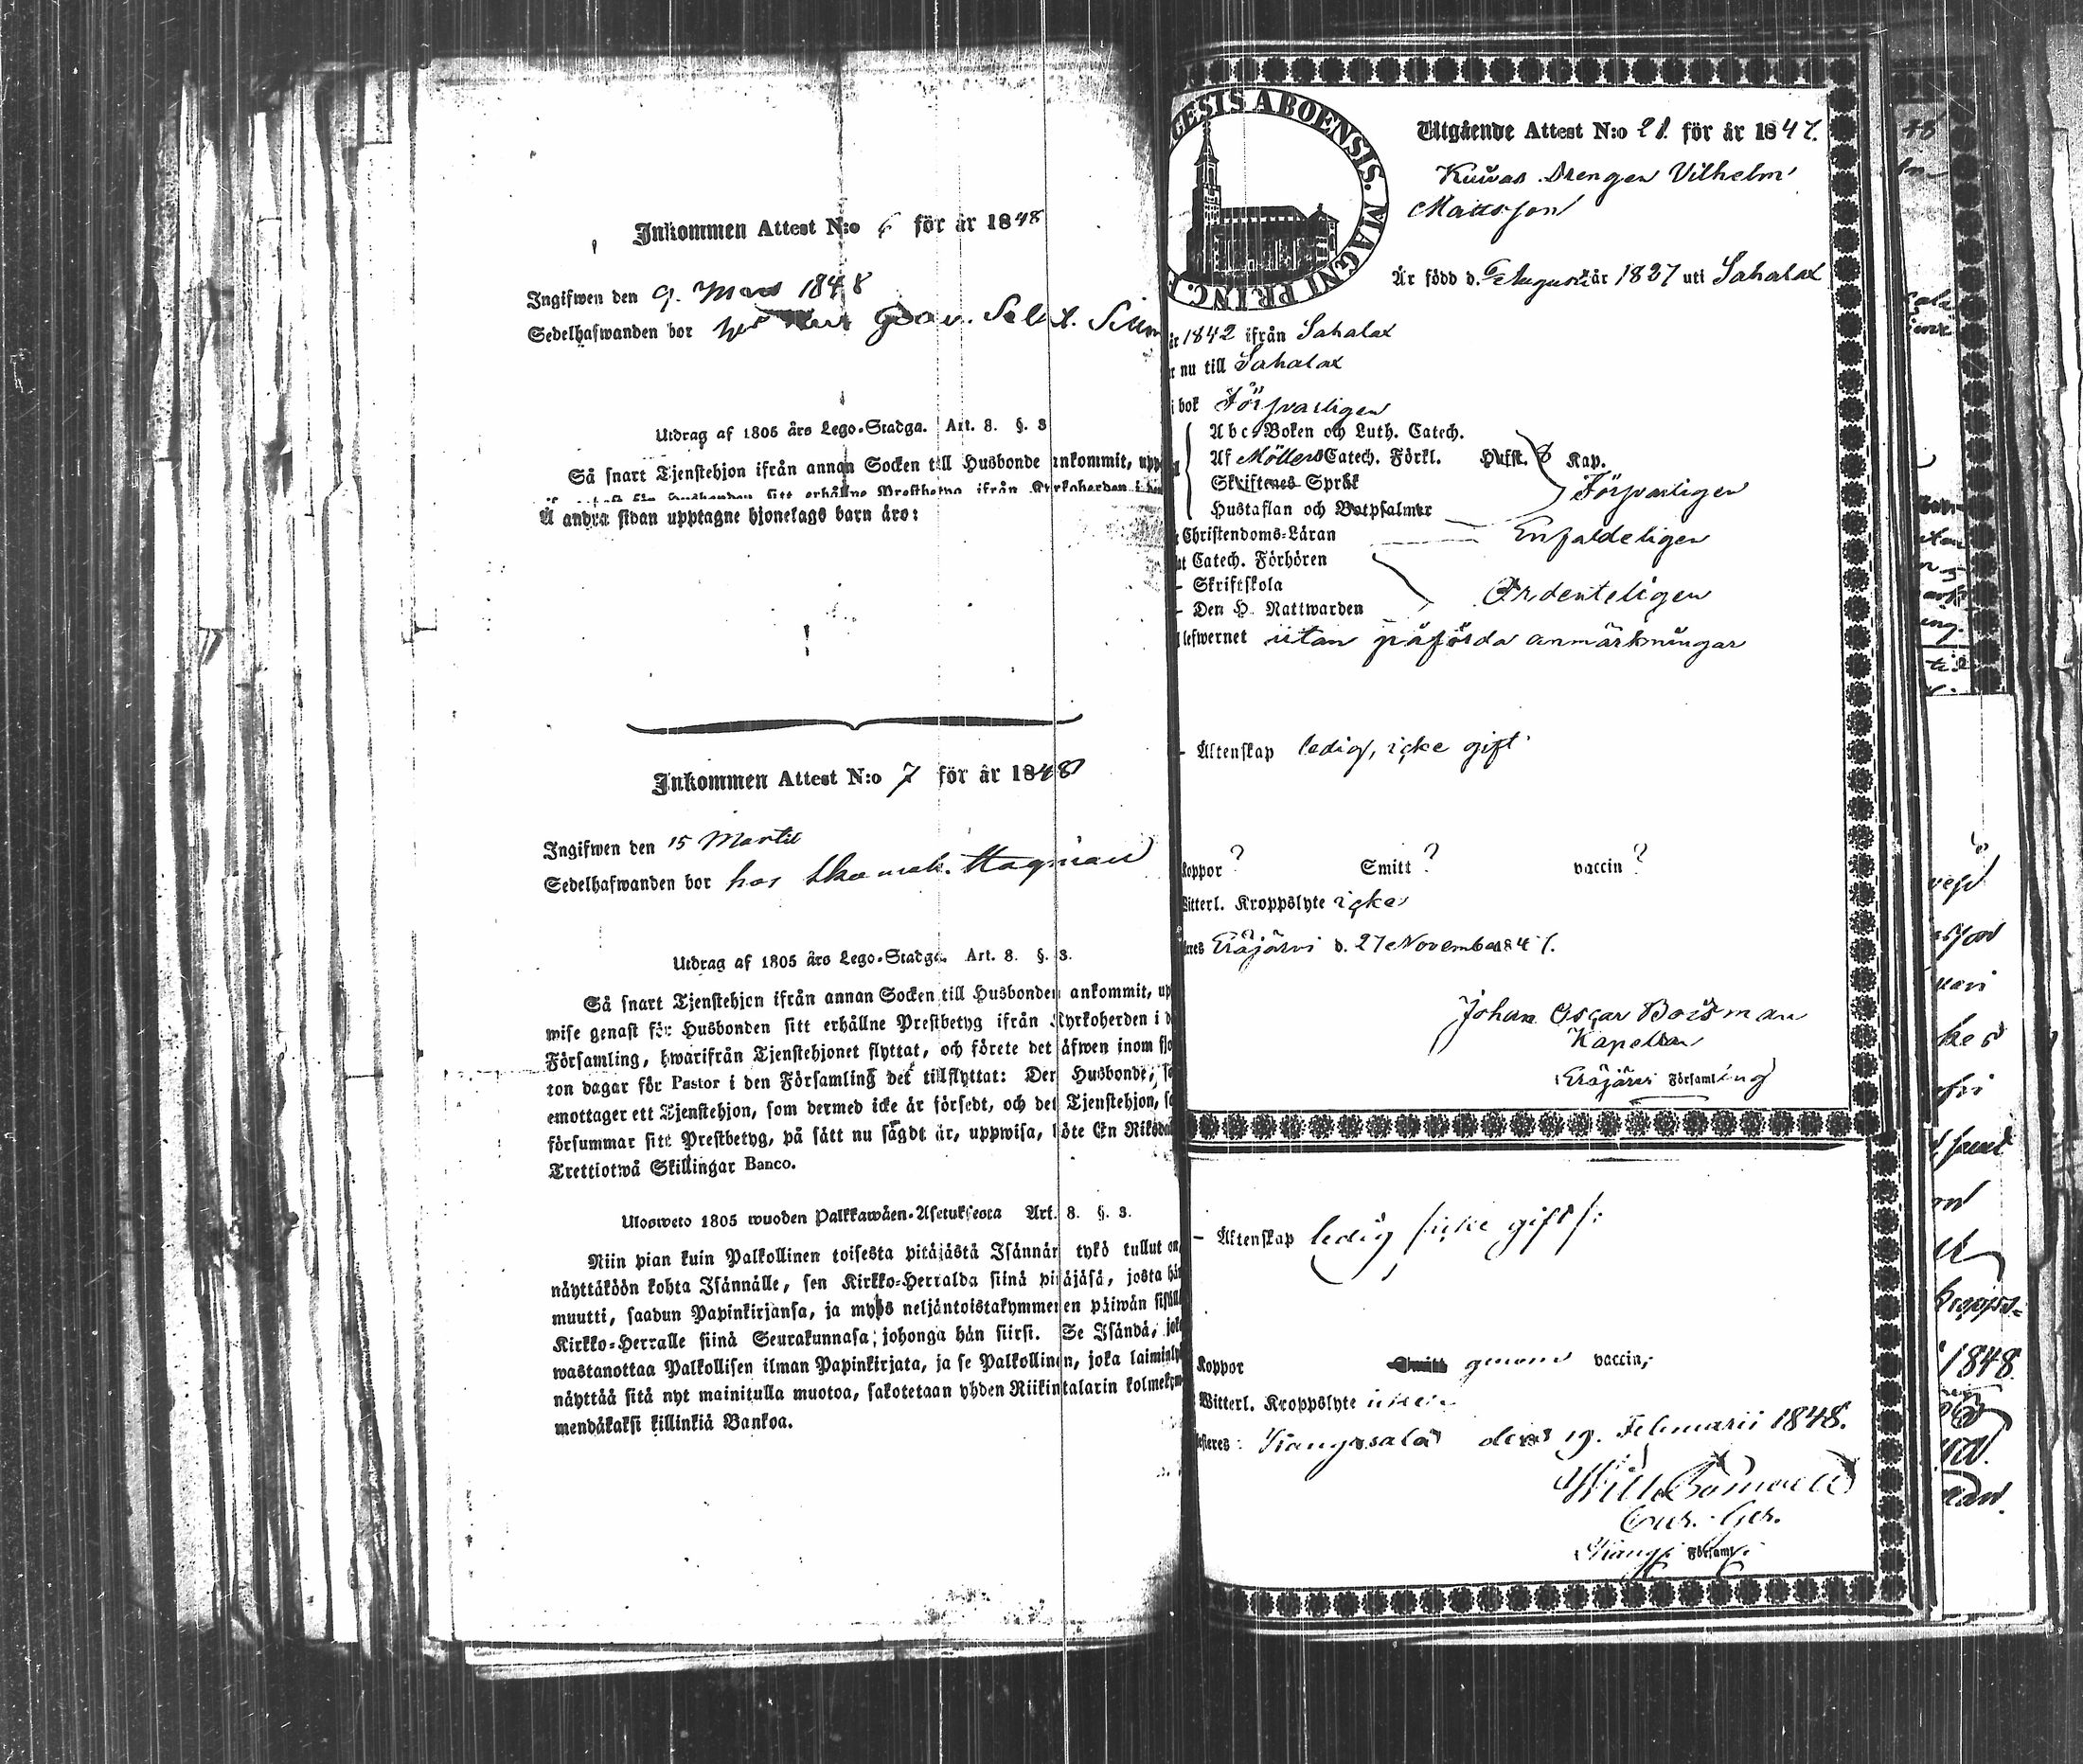 Inkommen Attest N:o 6 för år 1848
Ingifwen den 9. Mars 1848
Sedelhafwanden bor
Utdrag af 1805 års Lego-Stadga. Art. 8. §. 3
Så snart Tjenstehjon ifrån annan Socken till Husbonde ankommit, upp
sitt erhållne Prestbetyg ifrån Kyrkoherden i
Å andra sidan upptagne hjonelags barn äro:
Inkommen Attest N:o 7 för år 1848
Ingifwen den 15 Martii
Sedelhafwanden bor hos Skomak. Hagman
Utdrag af 1805 års Lego-Stadga. Art. 8. §. 3.
Så snart Tjenstehjon ifrån annan Socken till Husbonden ankommit, up
wise genast för Husbonden sitt erhållne Prestbetyg ifrån Kyrkoherden i d
Församling, hwarifrån Tjenstehjonet flyttat, och förete det äfwen inom fjo
ton dagar för Pastor i den Församling det tillflyttat: Den Husbonde, so
emottager ett Tjenstehjon, som dermed icke är försedt, och det Tjenstehjon, so
försummar sitt Prestbetyg, på sätt nu sagdt är, uppwisa, böte En Riksda
Trettiotwå Skillingar Banco.
Ulosweto 1805 wuoden Palkkawäen-Asetuksesta Art. 8. §. 3.
Niin pian kuin Palkollinen toisesta pitäjästä Isännän tykö tullut on,
näyttäköön kohta Isännälle, sen Kirkko-Herralda siinä pitäjäsä, josta hän
muutti, saadun Papinkirjansa, ja myös neljäntoistakymmenen päiwän sisällä
Kirkko-Herralle siinä Seurakunnasa, johonga hän siirsi. Se Isändä, joka
wastanottaa Palkollisen ilman Papinkirjata, ja se Palkollinen, joka laiminlyö
näyttää sitä nyt mainitulla muotoa, sakotetaan yhden Riikintalarin kolmekym
mendäkaksi killinkiä Bankoa.
CESIS ABOENSIS. MAGNI PRINC.
Utgående Attest N:o 21. för år 1847.
Drengen Vilhelm
Mattsson
Är född d. 6 Augusti år 1827 uti Sahalax
år 1842 ifrån Sahalax
r nu till Sahalax
i bok Försvarligen
Abc-Boken och Luth. Catech.
Af Möllers Catech. Förkl. Hufst. 8 Kap.
Skriftenes Språk Försvarligen
Hustaflan och Botpsalmer
Christendoms-Läran Enfaldeligen
Catech. Förhören
– Skriftskola
– Den H. Nattwarden Ordenteligen
lefwernet utan påförda anmärkningar
– Äktenskap ledig, icke gift
Koppor ? Smitt ? vaccin ?
Witterl. Kroppslyte icke
Eräjärvi d. 27 November 1847.
Johan Oscar Boisman
Kapellan
Eräjärvi Församling
– Äktenskap ledig /:icke gift/:
Koppor genom vaccin,
Witterl. Kroppslyte
Kangasala den 19. Februarii 1848.
Församl
1848.